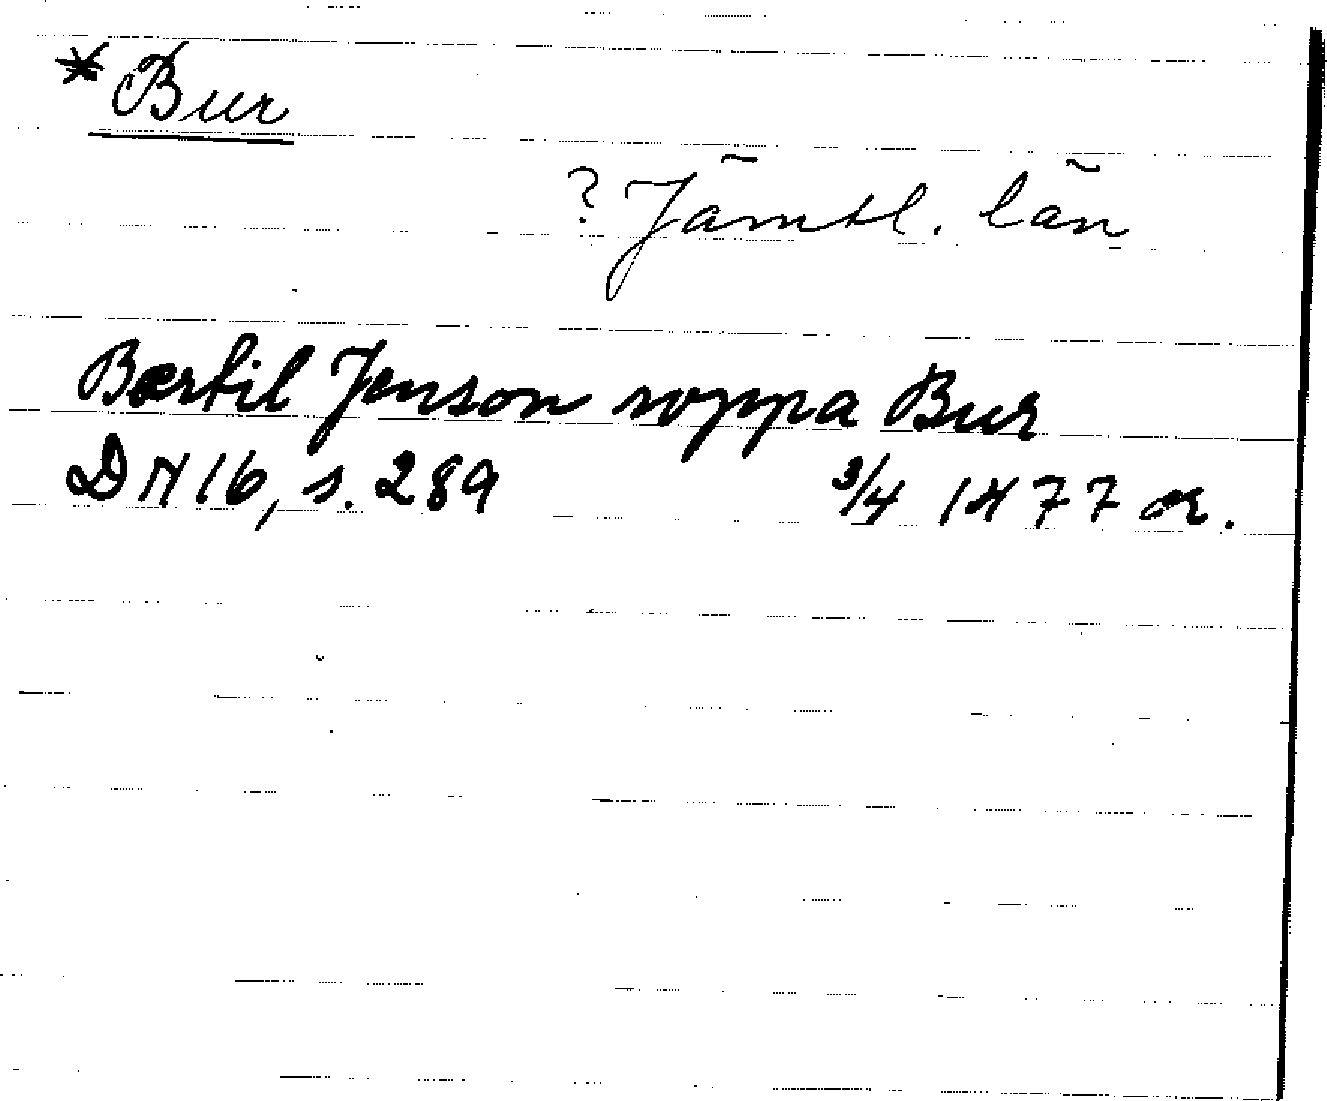 * Bur
? Jämtl. län
Bærtil Jenson soppa Bur
DN 16, s. 289 3/4 1477 or.